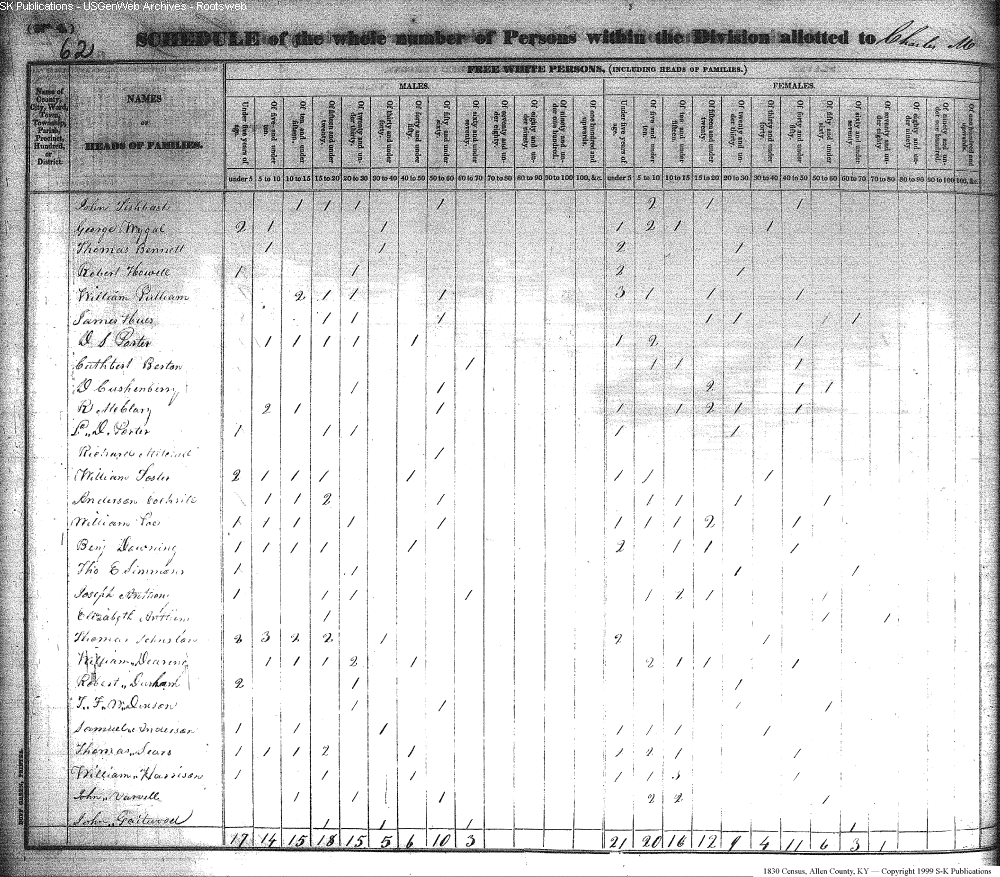 SK Publications - USGenWeb Archives - Rootsweb
62
SCHEDULE of the whole number of Persons within the Division allotted to Charles
FREE WHITE PERSONS, (INCLUDING HEADS OF FAMILIES.)
Name of County, City, Ward, Town, Township, Parish, Precinct, Hundred, or District.
NAMES OF HEADS OF FAMILIES.
MALES. FEMALES.
Under five years of age. Of five and under ten. Of ten and under fifteen. Of fifteen and under twenty. Of twenty and under thirty. Of thirty and under forty. Of forty and under fifty. Of fifty and under sixty. Of sixty and under seventy. Of seventy and under eighty. Of eighty and under ninety. Of ninety and under one hundred. Of one hundred and upwards. Under five years of age. Of five and under ten. Of ten and under fifteen. Of fifteen and under twenty. Of twenty and under thirty. Of thirty and under forty. Of forty and under fifty. Of fifty and under sixty. Of sixty and under seventy. Of seventy and under eighty. Of eighty and under ninety. Of ninety and under one hundred. Of one hundred and upwards.
under 5 5 to 10 10 to 15 15 to 20 20 to 30 30 to 40 40 to 50 50 to 60 60 to 70 70 to 80 80 to 90 90 to 100 100, &c. under 5 5 to 10 10 to 15 15 to 20 20 to 30 30 to 40 40 to 50 50 to 60 60 to 70 70 to 80 80 to 90 90 to 100 100, &c.
John 1 1 1 1 2 1 1
George Wygal 2 1 1 1 2 1 1
Thomas Bennett 1 1 2 1
Robert Howell 1 1 2 1
William Pulliam 2 1 1 1 3 1 1 1
James Hues 1 1 1 1 1 1
D S Porter 1 1 1 1 1 1 2 1
Cuthbert Berton 1 1 1 1
D Cushenberry 1 1 2 1 1
R McClary 2 1 1 1 1 2 1 1
L. D. Porter 1 1 1 1 1
Richard 1
William Foster 2 1 1 1 1 1 1 1
Anderson 1 1 2 1 1 1 1 1
William 1 1 1 1 1 1 1 1 2 1
Benj Downing 1 1 1 1 1 2 1 1 1
Tho E Simmons 1 1 1 1
Joseph 1 1 1 1 1 2 1 1
Elizabeth 1 1 1
Thomas Johnston 2 3 2 2 1 2 1
William Dearing 1 1 1 2 1 2 1 1 1
Robert Durham 2 1 1
T. F. 1 1 1 1
Samuel Anderson 1 1 1 1 1 1 1
Thomas Sears 1 1 1 2 1 1 2 1 1
William Harrison 1 1 1 1 1 1
John 1 1 1 2 2 1
John Gatewood 1 1 1 1
17 14 15 18 15 5 6 10 3 21 20 16 12 9 4 11 6 3 1
1830 Census, Allen County, KY — Copyright 1999 S-K Publications